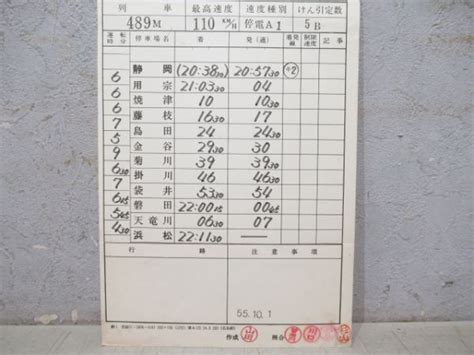 列 車 最高速度 速度種別 けん引定数
489M 110 KM/H 停電A1 5B
運転時分 停車場名 着 発(通) 着発線 制限速度 記事
静岡 (20:38 30) 20:57 30 ②
6 用宗 21:03 30 04
6 焼津 10 10 30
6 藤枝 16 30 17
7 島田 24 24 30
5 金谷 29 30 30
9 菊川 39 39 30
6 30 掛川 46 46 30
7 袋井 53 30 54
6 15 磐田 22:00 15 00 45
5 45 天竜川 06 30 07
4 30 浜松 22:11 30 —
行 路 注 意 事 項
55.10.1
作成 山 照合